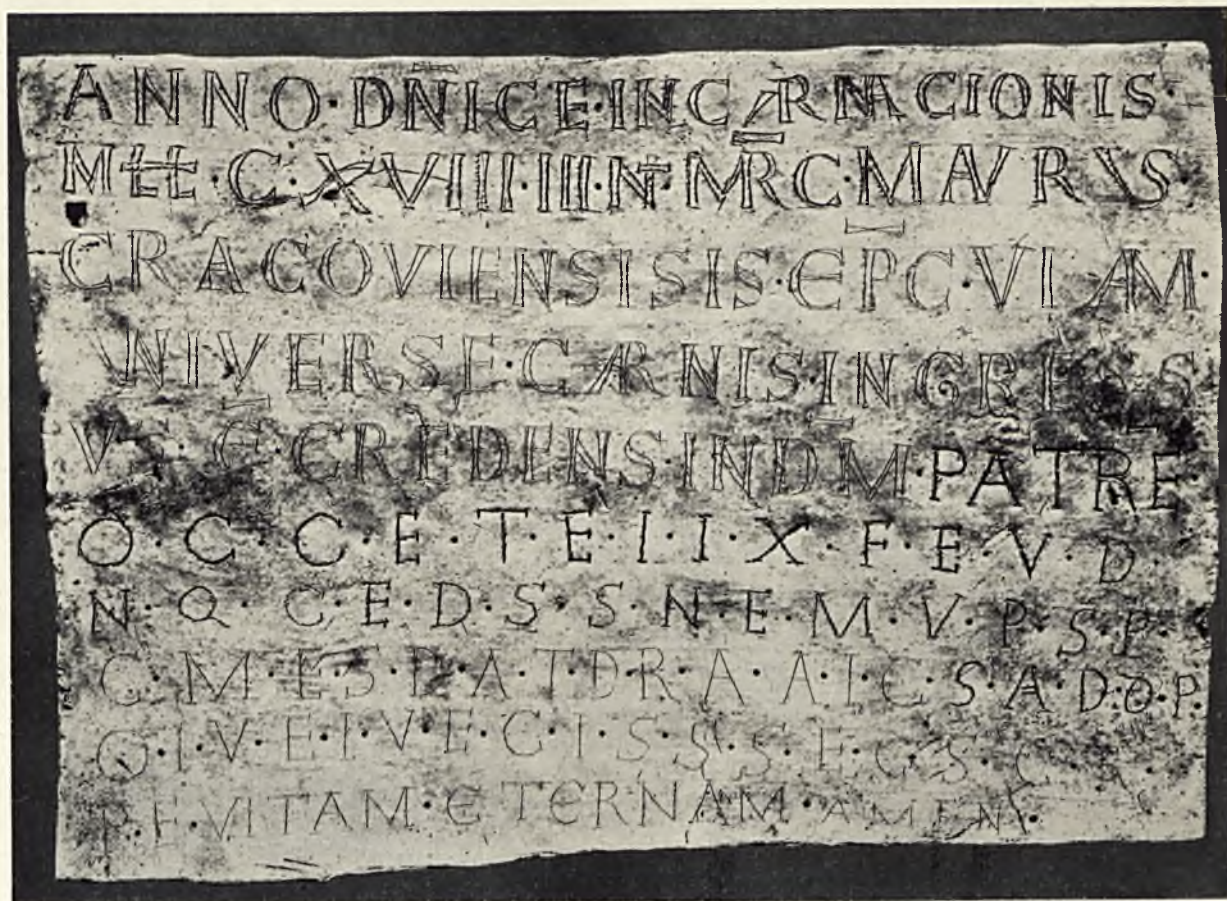 ANNO·DNICE·INCARNACIONIS
MILL·C·XVIIII·IIII·N·MRC·MAVRVS
CRACOVIENSISIS·EPC·VIAM·
VNIVERSE·CARNIS·INGRESS
VS·E·CREDENS·IN DM·PATRE
O·C·C·E·T·E·I·I·X·F·E·V·D
N·Q·C·E·D·S·S·N·E·M·V·P·S·P·
C·M·E·S·P·A·T·D·R·A·A·I·C·S·A·D·D·P·
G·I·V·E·I·V·E·C·I·S·S·S·E·C·S·C
P·E·VITAM·ETERNAM·AMEN·